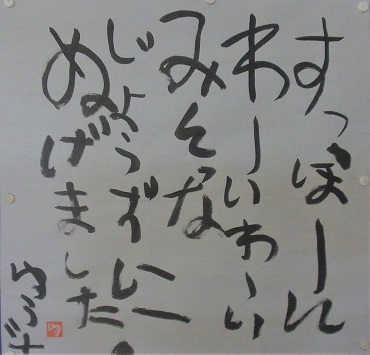 すっぽーん
わーいわーい
みんな
じょうずに
ぬげました！